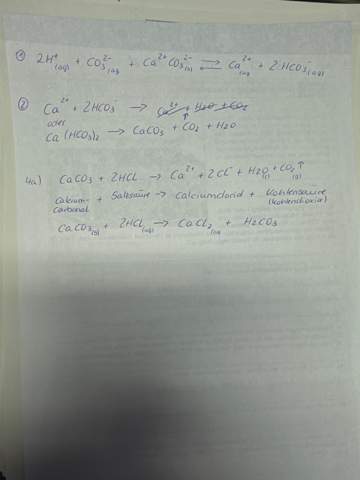 ① 2H⁺(aq) + CO₃²⁻(aq) + Ca²⁺CO₃²⁻(s) ⇌ Ca²⁺(aq) + 2 HCO₃⁻(aq)
② Ca²⁺ + 2HCO₃⁻ →
oder
Ca(HCO₃)₂ → CaCO₃ + CO₂↑ + H₂O
4a) CaCO₃ + 2HCl → Ca²⁺ + 2Cl⁻ + H₂O(l) + CO₂↑(g)
Calcium-carbonat + Salzsäure → Calciumclorid + Kohlensäure
(Kohlendioxid)
CaCO₃(s) + 2HCl(aq) → CaCl₂(aq) + H₂CO₃